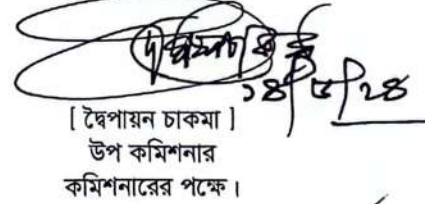 ১৪/৫/২৪
[ দ্বৈপায়ন চাকমা ]
উপ কমিশনার
কমিশনারের পক্ষে।